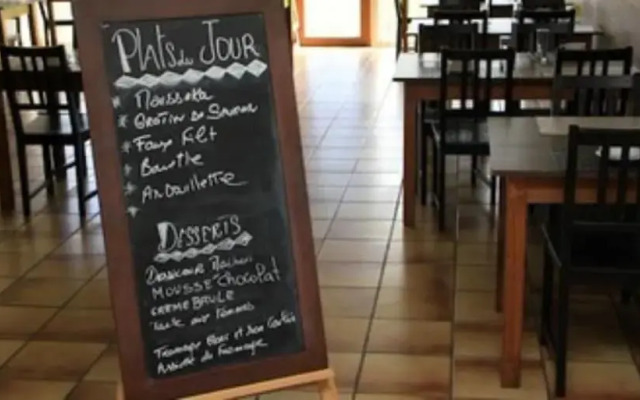 Plats du JOUR
* Moussaka
* Gratin de
* Faux filet
* Bavette
* Andouillette
*
DESSERTS
MOUSSE Chocolat
CREME BRULE
Tarte aux Pommes
Fromage Blanc et son Coulis
Assiette de Fromage